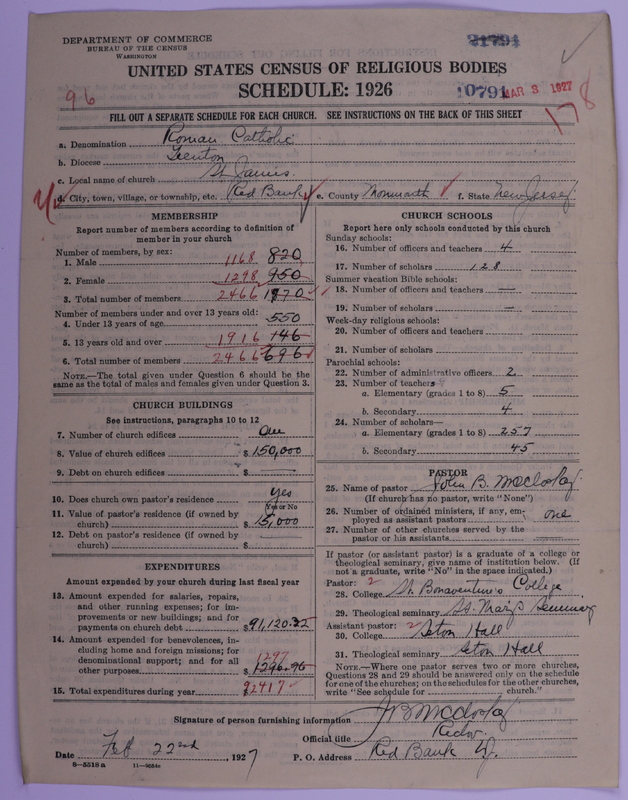 DEPARTMENT OF COMMERCE
BUREAU OF THE CENSUS
WASHINGTON
21794
UNITED STATES CENSUS OF RELIGIOUS BODIES
SCHEDULE: 1926
96
10791
MAR 3 1927
178
FILL OUT A SEPARATE SCHEDULE FOR EACH CHURCH. SEE INSTRUCTIONS ON THE BACK OF THIS SHEET
a. Denomination Roman Catholic
b. Diocese Trenton
c. Local name of church St. James.
d. City, town, village, or township, etc. Red Bank e. County Monmouth f. State New Jersey
MEMBERSHIP
Report number of members according to definition of
member in your church
Number of members, by sex:
1. Male 1168 820
2. Female 1298 950
3. Total number of members 2466 1870
Number of members under and over 13 years old:
4. Under 13 years of age 550
5. 13 years old and over 1916 146
6. Total number of members 2466 696
NOTE.—The total given under Question 6 should be the
same as the total of males and females given under Question 3.
CHURCH BUILDINGS
See instructions, paragraphs 10 to 12
7. Number of church edifices One
8. Value of church edifices $ 150,000
9. Debt on church edifices $
10. Does church own pastor's residence yes
Yes or No
11. Value of pastor's residence (if owned by
church) $ 15,000
12. Debt on pastor's residence (if owned by
church) $
EXPENDITURES
Amount expended by your church during last fiscal year
13. Amount expended for salaries, repairs,
and other running expenses; for im-
provements or new buildings; and for
payments on church debt $ 91,120.32
14. Amount expended for benevolences, in-
cluding home and foreign missions; for
denominational support; and for all
other purposes $ 1297 1296.96
15. Total expenditures during year $ 92417
CHURCH SCHOOLS
Report here only schools conducted by this church
Sunday schools:
16. Number of officers and teachers 4
17. Number of scholars 128
Summer vacation Bible schools:
18. Number of officers and teachers —
19. Number of scholars —
Week-day religious schools:
20. Number of officers and teachers
21. Number of scholars
Parochial schools:
22. Number of administrative officers 2
23. Number of teachers—
a. Elementary (grades 1 to 8) 5
b. Secondary 4
24. Number of scholars—
a. Elementary (grades 1 to 8) 257
b. Secondary 45
PASTOR
25. Name of pastor John B. McCloskey
(If church has no pastor, write "None")
26. Number of ordained ministers, if any, em-
ployed as assistant pastors one
27. Number of other churches served by the
pastor or his assistants
If pastor (or assistant pastor) is a graduate of a college or
theological seminary, give name of institution below. (If
not a graduate, write "No" in the space indicated.)
Pastor: 2
28. College St. Bonaventure's College
29. Theological seminary St. Mary's Seminary
Assistant pastor: 2
30. College Seton Hall
31. Theological seminary Seton Hall
NOTE.—Where one pastor serves two or more churches,
Questions 28 and 29 should be answered only on the schedule
for one of the churches; on the schedules for the other churches,
write "See schedule for church."
Signature of person furnishing information J B McCloskey
Official title Rector.
Date Feb 22nd, 1927 P. O. Address Red Bank NJ.
8—5518a 11—9554c